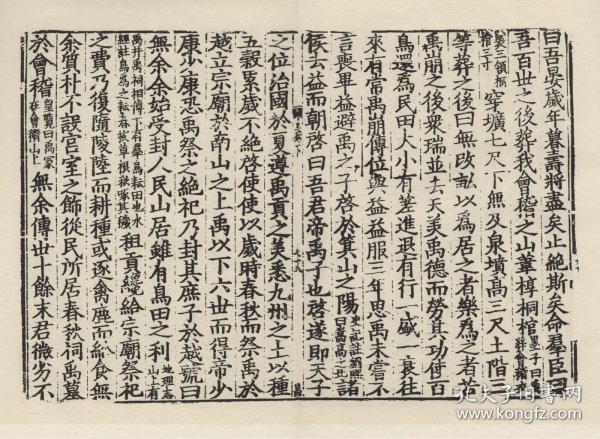 曰吾晏歲年暮壽將盡矣止絕斯矣命羣臣曰
吾百世之後葬我會稽之山葦椁桐棺墨子曰禹葬會稽衣
裘三領桐棺三寸穿壙七尺下無及泉墳高三尺土階三
等葬之後曰無改畝以爲居之者樂爲之者苦
禹崩之後衆瑞並去天美禹德而勞其功使百
鳥還爲民田大小有差進退有行一盛一衰往
來有常禹崩傳位與益益服三年思禹未嘗不
言喪畢益避禹之子啓於箕山之陽諸
侯去益而朝啓曰吾君帝禹子也啓遂即天子
之位治國於夏遵禹貢之美悉九州之土以種
五穀累歲不絕啓使使以歲時春秋而祭禹於
越立宗廟於南山之上禹以下六世而得帝少
康少康恐禹祭之絕祀乃封其庶子於越號曰
無余余始受封人民山居雖有鳥田之利地理志山上有
禹井禹祠相傳下有羣鳥耘田也水經註鳥爲之耘春拔草根秋啄其穢租貢纔給宗廟祭祀
之費乃復隨陵陸而耕種或逐禽鹿而給食無
余質朴不設宮室之飾從民所居春秋祠禹墓
於會稽皇覽曰禹冢在會稽山上無余傳世十餘末君微劣不
孔夫子旧书网
www.kongfz.com